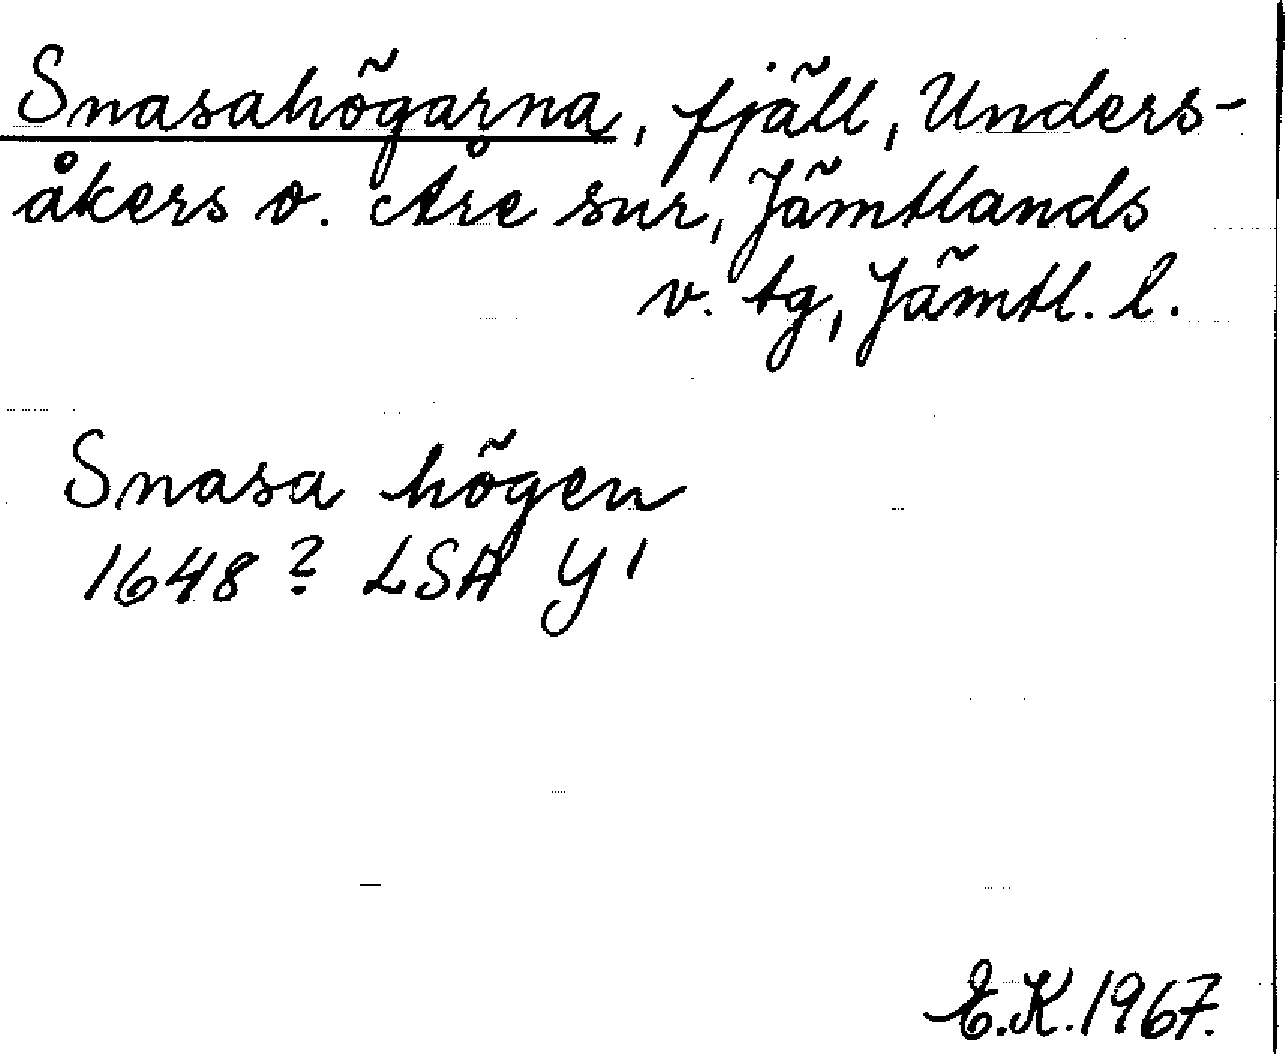 Snasahögarna, fjäll, Unders-
åkers o. Åre snr, Jämtlands
v. tg, Jämtl. l.
Snasa högen
1648? LSA Y 1
E.K. 1967.